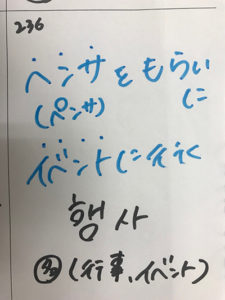 236
ペンサをもらい
(ペンサ) に
イベントに行く
행사
(行事、イベント)